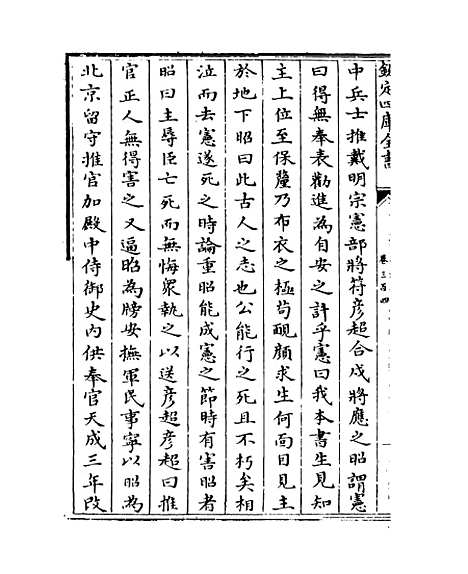 欽定四庫全書
卷三百四
中兵士推戴明宗憲部將符彥超合戍將應之昭謂憲
曰得無奉表勸進為自安之計乎憲曰我本書生見知
主上位至保釐乃布衣之極苟靦顔求生何面目見主
於地下昭曰此古人之志也公能行之死且不朽矣相
泣而去憲遂死之時論重昭能成憲之節時有害昭者
昭曰主辱臣亡死而無悔衆執之以送彥超彥超曰推
官正人無得害之又逼昭為牓安撫軍民事寧以昭為
北京留守推官加殿中侍御史内供奉官天成三年改